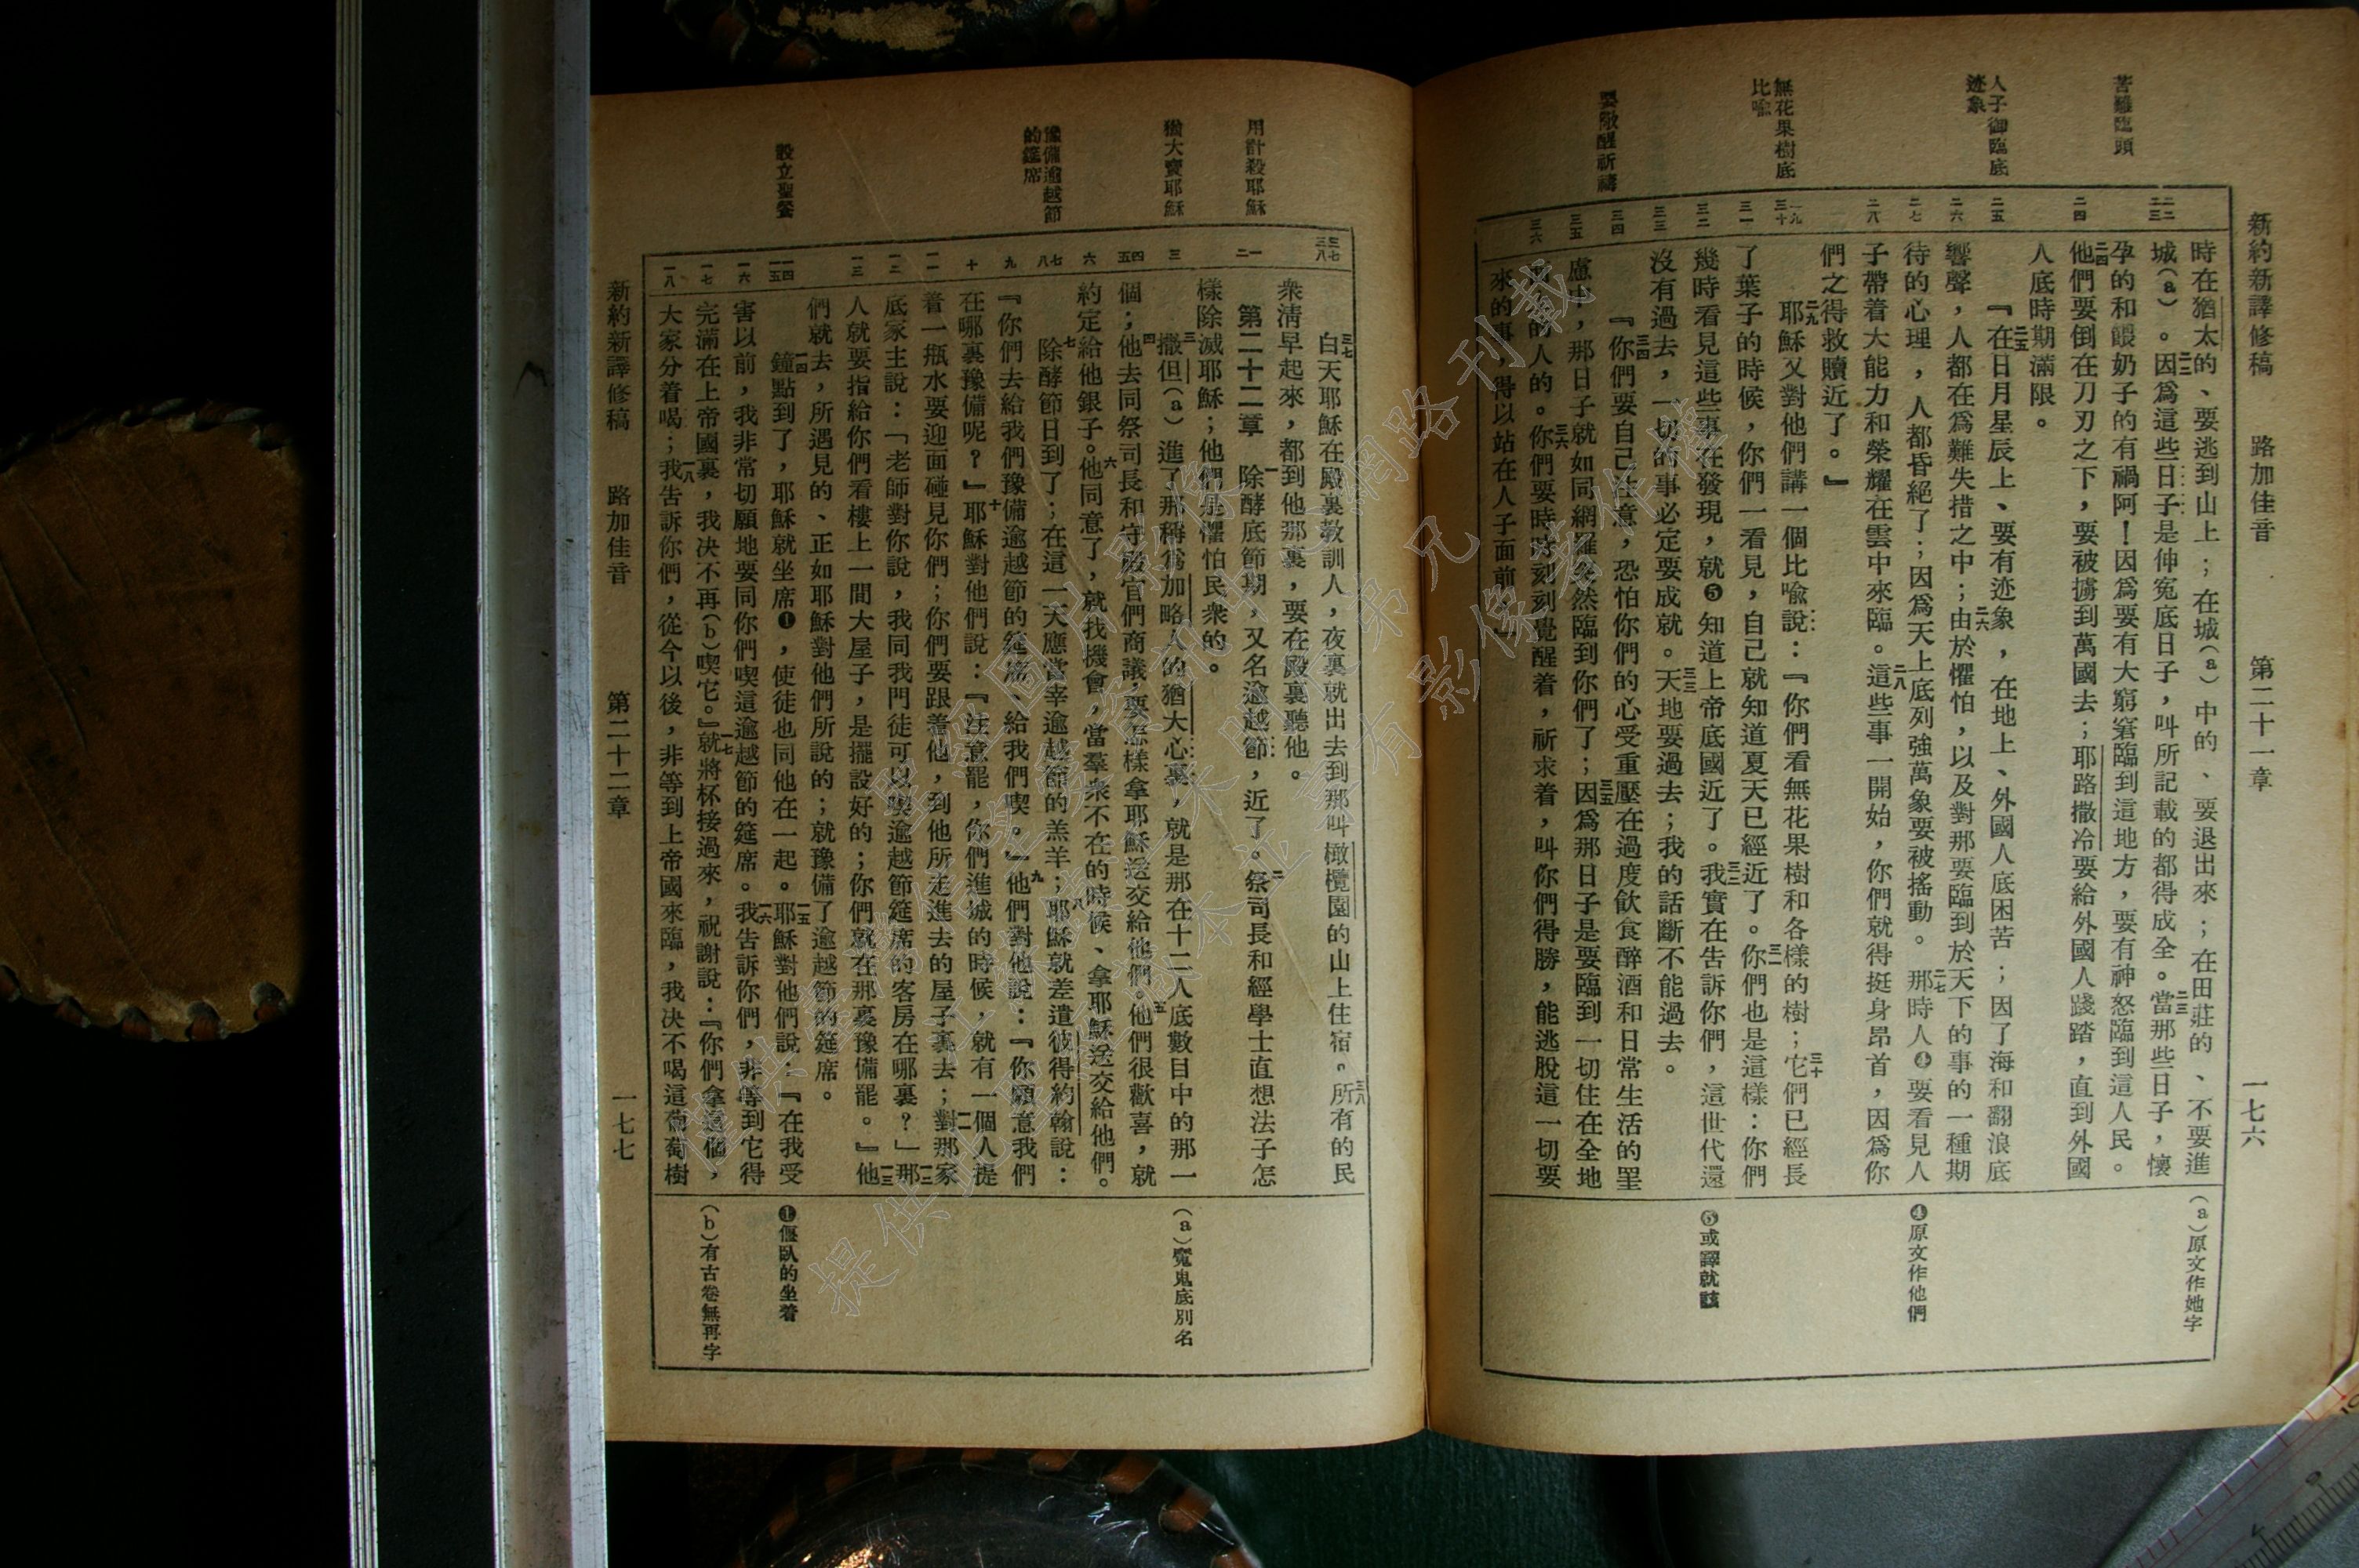 新約新譯修稿 路加佳音 第二十一章 一七六
苦難臨頭
人子御臨底
迹象
無花果樹底
比喻
要儆醒祈禱
時在猶太的、要逃到山上；在城(a)中的、要退出來；在田莊的、不要進
城(a)。二二因爲這些日子是伸冤底日子，叫所記載的都得成全。二三當那些日子，懷
孕的和餵奶子的有禍阿！因爲要有大窮窘臨到這地方，要有神怒臨到這人民。
二四他們要倒在刀刃之下，要被擄到萬國去；耶路撒冷要給外國人踐踏，直到外國
人底時期滿限。
二五『在日月星辰上、要有迹象，在地上、外國人底困苦；因了海和翻浪底
響聲，人都在爲難失措之中；二六由於懼怕，以及對那要臨到於天下的事的一種期
待的心理，人都昏絕了；因爲天上底列強萬象要被搖動。二七那時人❹要看見人
子帶着大能力和榮耀在雲中來臨。二八這些事一開始，你們就得挺身昂首，因爲你
們之得救贖近了。』
二九耶穌又對他們講一個比喻說：『你們看無花果樹和各樣的樹；三十它們已經長
了葉子的時候，你們一看見，自己就知道夏天已經近了。三一你們也是這樣：你們
幾時看見這些事在發現，就❺知道上帝底國近了。三二我實在告訴你們，這世代還
沒有過去，一切的事必定要成就。三三天地要過去；我的話斷不能過去。
三四『你們要自己注意，恐怕你們的心受重壓在過度飲食醉酒和日常生活的罣
慮中，那日子就如同網羅忽然臨到你們了；三五因爲那日子是要臨到一切住在全地
的人的。三六你們要時時刻刻覺醒着，祈求着，叫你們得勝，能逃脫這一切要
來的事，得以站在人子面前。』
(a)原文作她字
❹原文作他們
❺或譯就該
用計殺耶穌
猶大賣耶穌
豫備逾越節
的筵席
設立聖餐
三七白天耶穌在殿裏教訓人，夜裏就出去到那叫橄欖園的山上住宿。三八所有的民
衆淸早起來，都到他那裏，要在殿裏聽他。
第二十二章 一除酵底節期，又名逾越節，近了。二祭司長和經學士直想法子怎
樣除滅耶穌；他們是懼怕民衆的。
三撒但(a)進了那稱爲加略人的猶大心裏，就是那在十二人底數目中的那一
個；四他去同祭司長和守殿官們商議，要怎樣拿耶穌送交給他們。五他們很歡喜，就
約定給他銀子。六他同意了，就找機會，當羣衆不在的時候、拿耶穌送交給他們。
七除酵節日到了；在這一天應當宰逾越節的羔羊；八耶穌就差遣彼得約翰說：
『你們去給我們豫備逾越節的筵席、給我們喫。』九他們對他說：『你願意我們
在哪裏豫備呢？』十耶穌對他們說：『注意罷，你們進城的時候，就有一個人提
着一瓶水要迎面碰見你們；你們要跟着他，到他所走進去的屋子裏去；一一對那家
底家主說：「老師對你說，我同我門徒可以喫逾越節筵席的客房在哪裏？」一二那
人就要指給你們看樓上一間大屋子，是擺設好的；你們就在那裏豫備罷。』一三他
們就去，所遇見的、正如耶穌對他們所說的；就豫備了逾越節的筵席。
一四鐘點到了，耶穌就坐席❶，使徒也同他在一起。一五耶穌對他們說：『在我受
害以前，我非常切願地要同你們喫這逾越節的筵席。一六我告訴你們，非等到它得
完滿在上帝國裏，我決不再(b)喫它。』一七就將杯接過來，祝謝說：『你們拿這個，
大家分着喝；一八我告訴你們，從今以後，非等到上帝國來臨，我決不喝這葡萄樹
(a)魔鬼底別名
❶偃臥的坐着
(b)有古卷無再字
新約新譯修稿 路加佳音 第二十二章 一七七